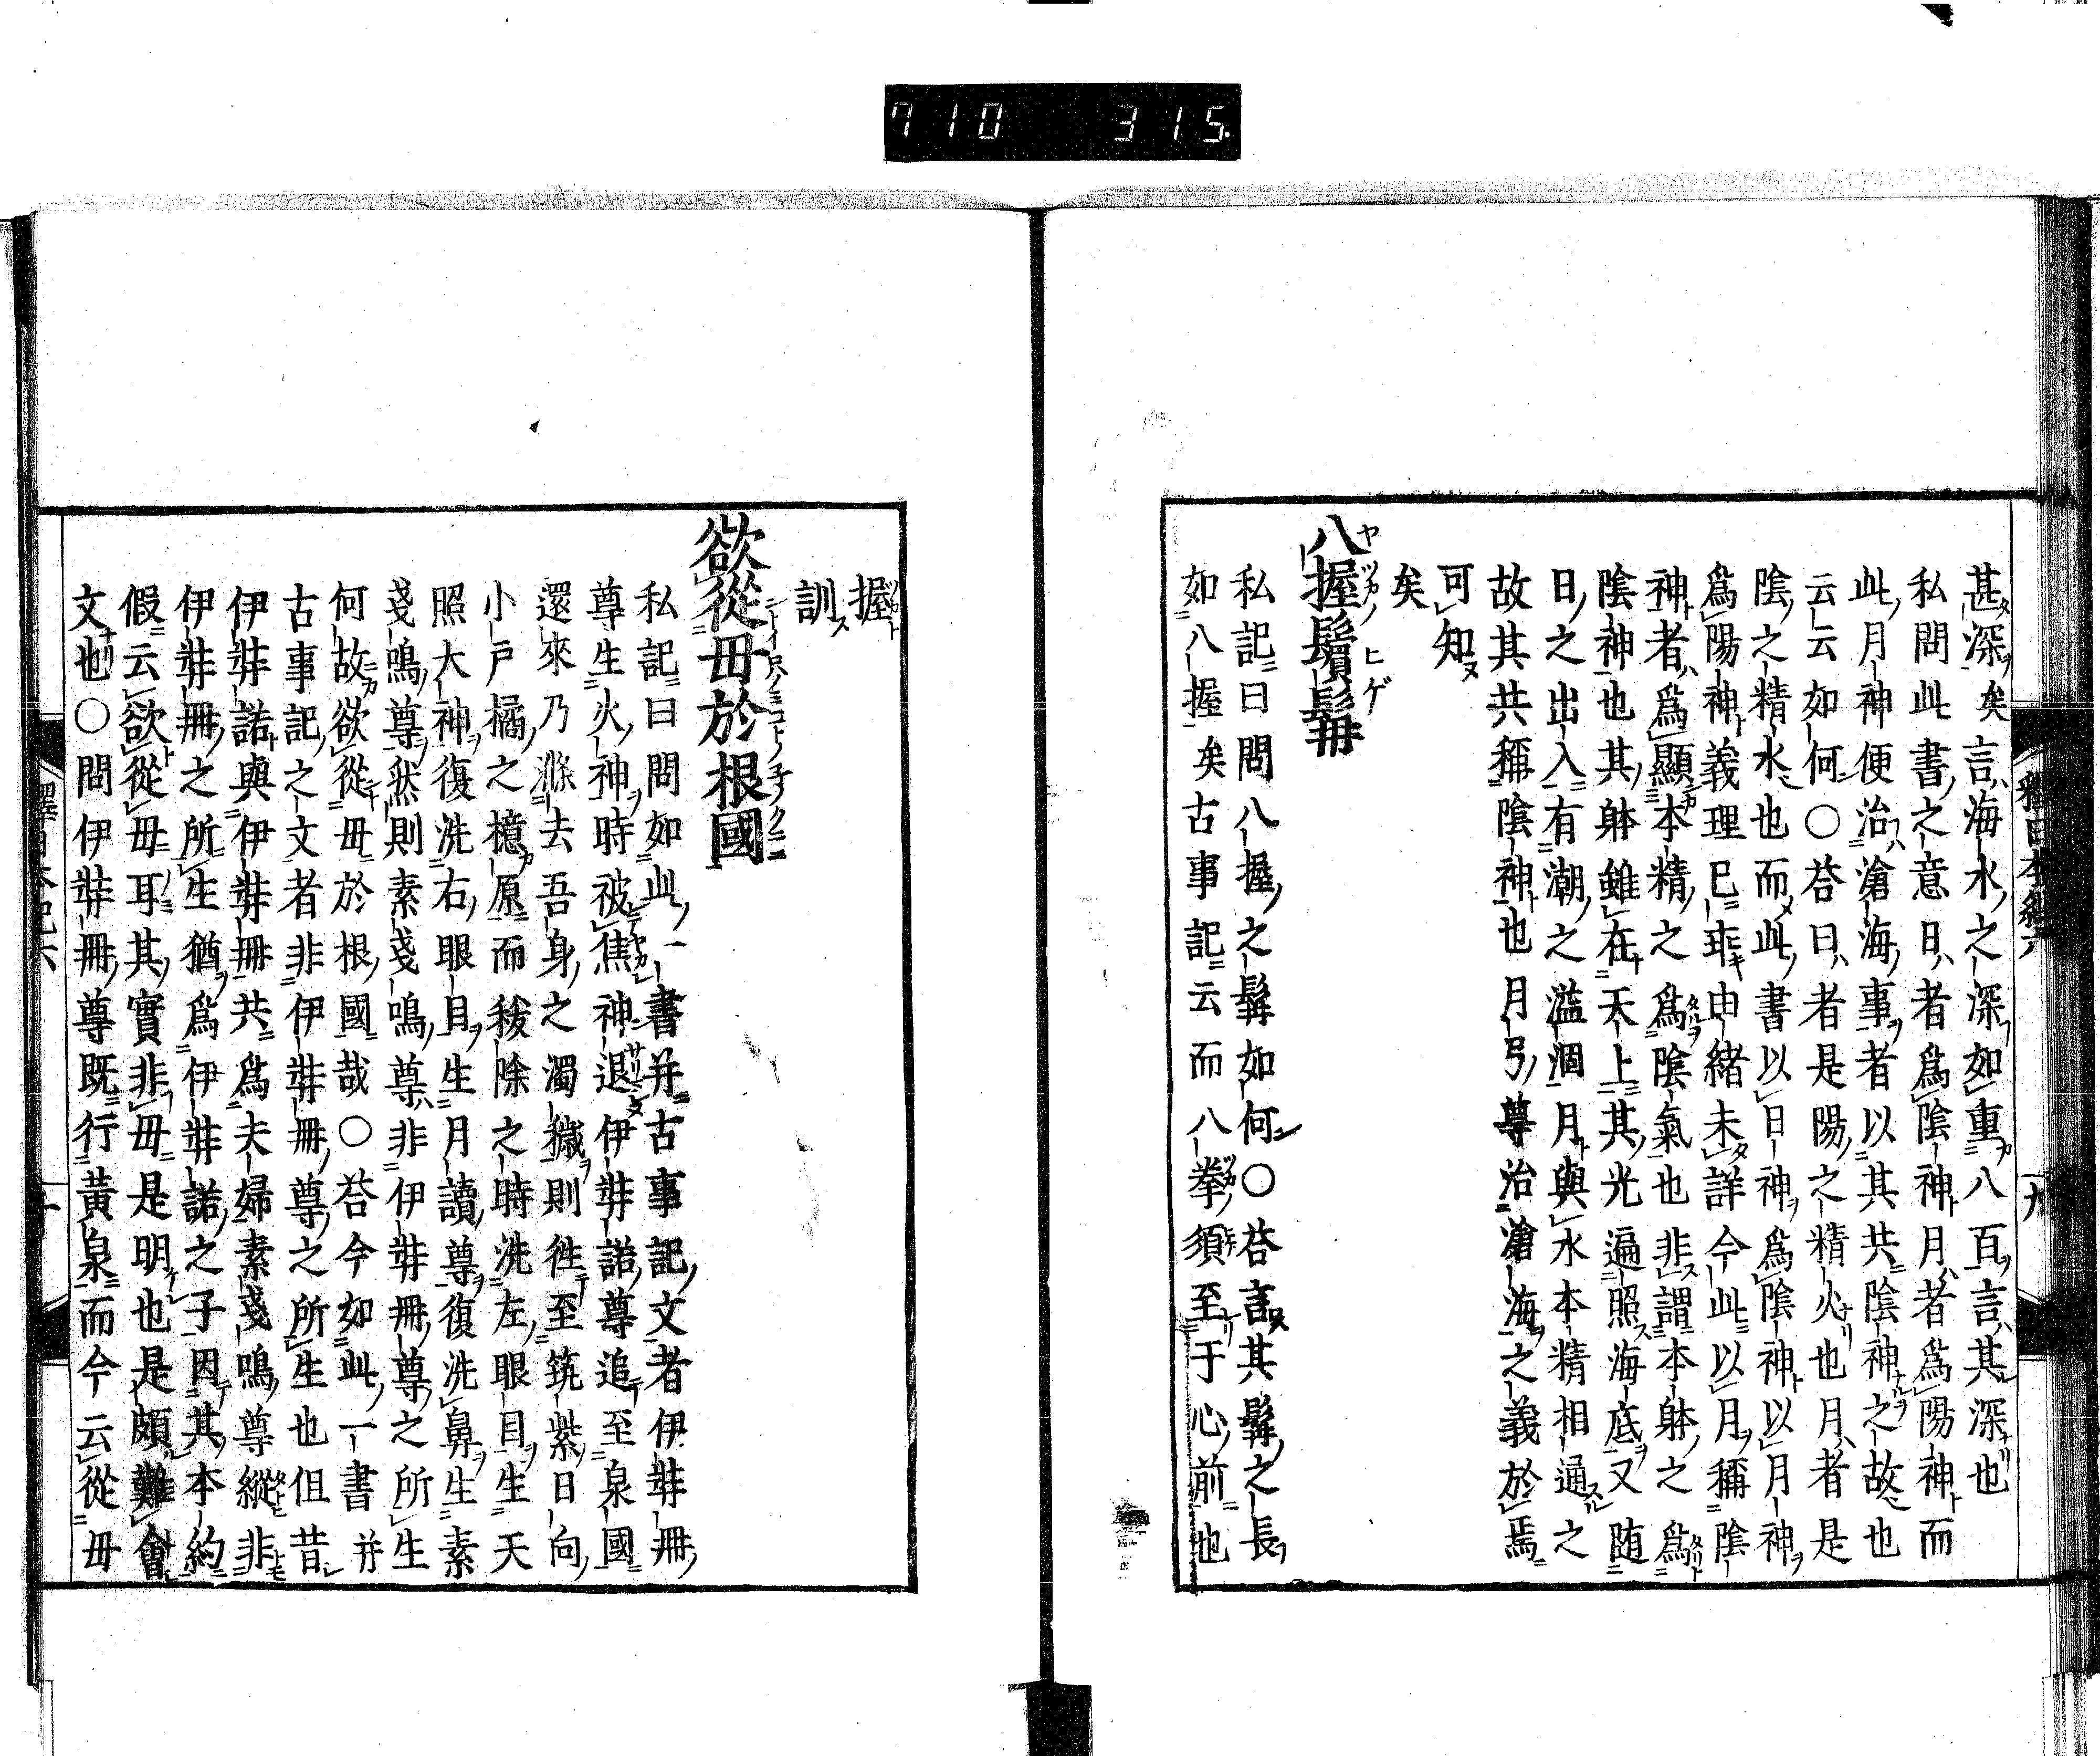 710 315
甚深矣言海水之深如重八百言其深也
私問此書之意日者爲陰神月者爲陽神而
此月神便治滄海事者以其共陰神之故也
云云如何○荅曰者是陽之精火也月者是
陰之精水也而此書以日神爲陰神以月神
爲陽神義理已乖由緒未詳今此以月稱陰
神者爲顯本精之爲陰氣也非謂本躰之爲
陰神也其躰雖在天上其光遍照海底又随
日之出入有潮之溢涸月與水本精相通之
故其共稱陰神也月弓尊治滄海之義於焉
可知
矣
八握鬚髯
私記曰問八握之髯如何○荅言其髯之長
如八握矣古事記云而八拳須至于心前也
握
訓
欲從毋於根國
私記曰問如此一書并古事記文者伊弉冊
尊生火神時被焦神退伊弉諾尊追至泉國
還來乃滌去吾身之濁穢則徃至筑紫日向
小戸橘之檍原而秡除之時洗左眼目生天
照大神復洗右眼目生月讀尊復洗鼻生素
戔鳴尊然則素戔鳴尊非伊弉冊尊之所生
何故欲從毋於根國哉○荅今如此一書并
古事記之文者非伊弉冊尊之所生也但昔
伊弉諾與伊弉冊共爲夫婦素戔鳴尊縱非
伊弉冊之所生猶爲伊弉諾之子因其本約
假云欲從毋耳其實非毋是明也是頗難會
文也○問伊弉冊尊既行黃泉而今云從毋